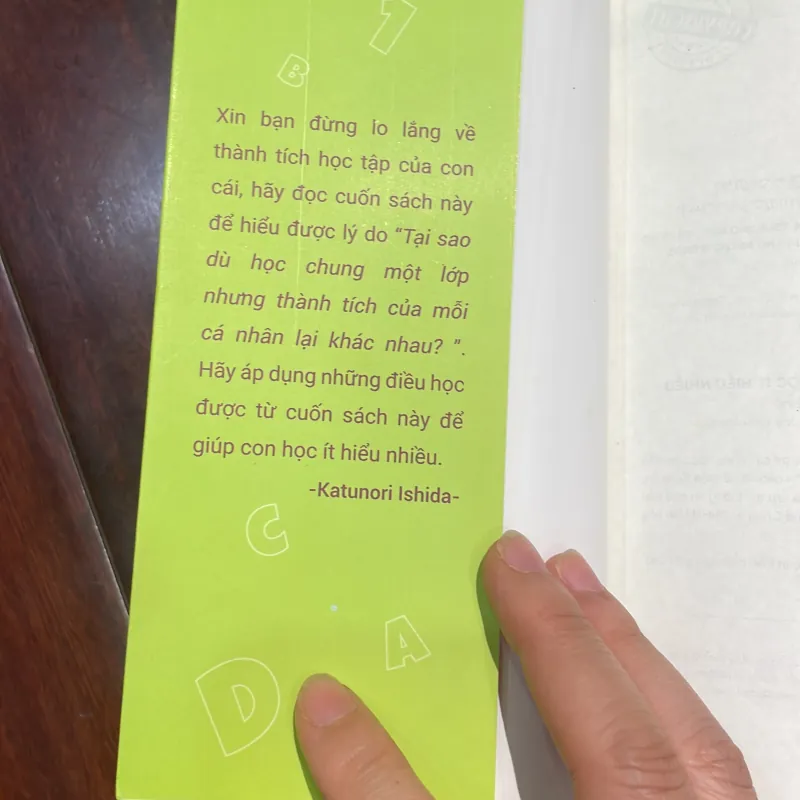 1
B
Xin bạn đừng lo lắng về
thành tích học tập của con
cái, hãy đọc cuốn sách này
để hiểu được lý do “Tại sao
dù học chung một lớp
nhưng thành tích của mỗi
cá nhân lại khác nhau? ”.
Hãy áp dụng những điều học
được từ cuốn sách này để
giúp con học ít hiểu nhiều.
-Katunori Ishida-
C
A
D